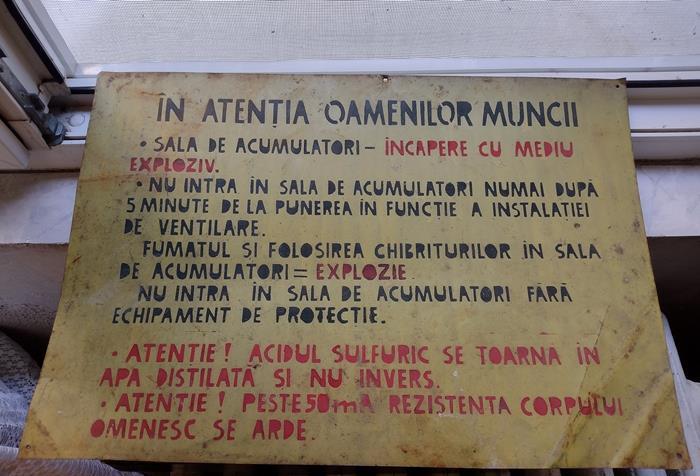 ÎN ATENȚIA OAMENILOR MUNCII
• SALA DE ACUMULATORI – ÎNCAPERE CU MEDIU
EXPLOZIV.
• NU INTRA ÎN SALA DE ACUMULATORI NUMAI DUPĂ
5 MINUTE DE LA PUNEREA ÎN FUNCȚIE A INSTALAȚIEI
DE VENTILARE.
FUMATUL ȘI FOLOSIREA CHIBRITURILOR ÎN SALA
DE ACUMULATORI = EXPLOZIE.
NU INTRA ÎN SALA DE ACUMULATORI FĂRĂ
ECHIPAMENT DE PROTECȚIE.
• ATENȚIE! ACIDUL SULFURIC SE TOARNĂ ÎN
APĂ DISTILATĂ ȘI NU INVERS.
• ATENȚIE! PESTE 50 mA REZISTENȚA CORPULUI
OMENESC SE ARDE.